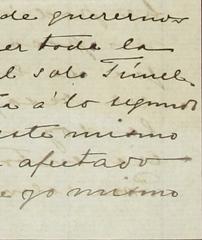 de querernos
er toda la
l solo Túnel
ta á lo segun
este mismo
afectado
e yo mismo